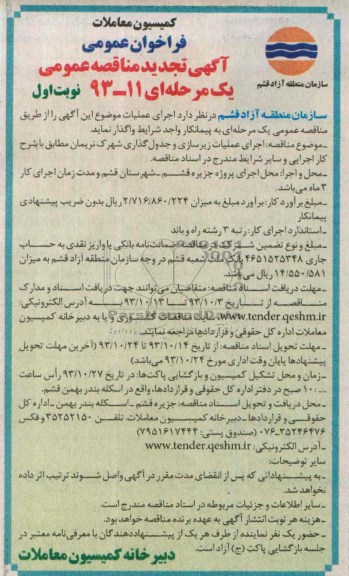 کمیسیون معاملات
فراخوان عمومی
آگهی تجدید مناقصه عمومی
یک مرحله‌ای ۱۱ــ۹۳ نوبت اول
سازمان منطقه آزاد قشم
سازمان منطقـه آزاد قشم در نظر دارد اجرای عملیات موضوع این آگهی را از طریق
مناقصه عمومی یک مرحله‌ای به پیمانکار واجد شرایط واگذار نماید.
ـ موضوع مناقصه: اجرای عملیات زیرسازی و جدول‌گذاری شهرک نریمان مطابق با شرح
کار اجرایی و سایر شرایط مندرج در اسناد مناقصه.
ـ محل و اجرا: محل اجرای پروژه جزیره قشـم ـ شهرستان قشم و مدت زمان اجرای کار
۳ ماه می‌باشد.
ـ مبلغ برآورد کار: برآورد مبلغ به میزان ۲/۷۱۶/۸۶۰/۲۲۴ ریال بدون ضریب پیشنهادی
پیمانکار
ـ استاندارد اجرای کار: رتبه ۳ رشته راه و باند
ـ مبلغ و نوع تضمین شـرکت در مناقصه: ضمانت‌نامه بانکی یا واریز نقدی به حساب
جاری ۴۶۵۱۵۲۵۳۴۸ بانک ملت شعبه قشم در وجه سازمان منطقه آزاد قشم به میزان
۱۴/۵۵۰/۵۸۱ ریال می‌باشد.
ـ مهلت دریافت اسناد مناقصه: متقاضیان می‌توانند جهت دریافت اسناد و مدارک
مناقصـه از تـاریخ ۹۳/۱۰/۳ تـا ۹۳/۱۰/۱۳ بـه آدرس الکترونیکی:
www.tender.qeshm.ir و یا به دبیرخانه کمیسیون
معاملات اداره کل حقوقی و قراردادها مراجعه نمایند.
ـ مهلت تحویل اسناد مناقصه: از تاریخ ۹۳/۱۰/۱۴ تا ۹۳/۱۰/۲۴ (آخرین مهلت تحویل
پیشنهادها پایان وقت اداری مورخ ۹۳/۱۰/۲۴ می‌باشد)
ـ زمان و محل تشکیل کمیسیون و بازگشایی پاکت‌ها: در تاریخ ۹۳/۱۰/۲۷ رأس ساعت
۱۰:۰۰ صبح در دفتر اداره کل حقوقی و قراردادها، واقع در اسکله بندر بهمن قشم.
ـ محل دریافت و تحویل اسناد مناقصه: جزیره قشم ـ اسکله بندر بهمن ـ اداره کل
حقوقـی و قراردادهـا ـ دبیرخانه کمیسیون معاملات. تلفـن ۳۵۲۵۲۱۵۰ و فکس
۳۵۲۴۶۴۷۶ـ۰۷۶ (صندوق پستی: ۷۹۵۱۶۱۷۴۴۴)
ـ آدرس الکترونیکی: www.tender.qeshm.ir
سایر توضیحات:
ـ به پیشـنهاداتی که پس از انقضای مدت مقرر در آگهی واصل شـوند ترتیب اثر داده
نخواهد شد.
ـ سایر اطلاعات و جزئیات مربوطه در اسناد مناقصه مندرج است.
ـ هزینه هر نوبت انتشار آگهی به عهده برنده مناقصه خواهد بود.
ـ حضور یک نفر نماینده از طرف هر یک از پیشنهاددهندگان با معرفی‌نامه معتبر در
جلسه بازگشایی پاکت (ج) آزاد است.
دبیرخانه کمیسیون معاملات